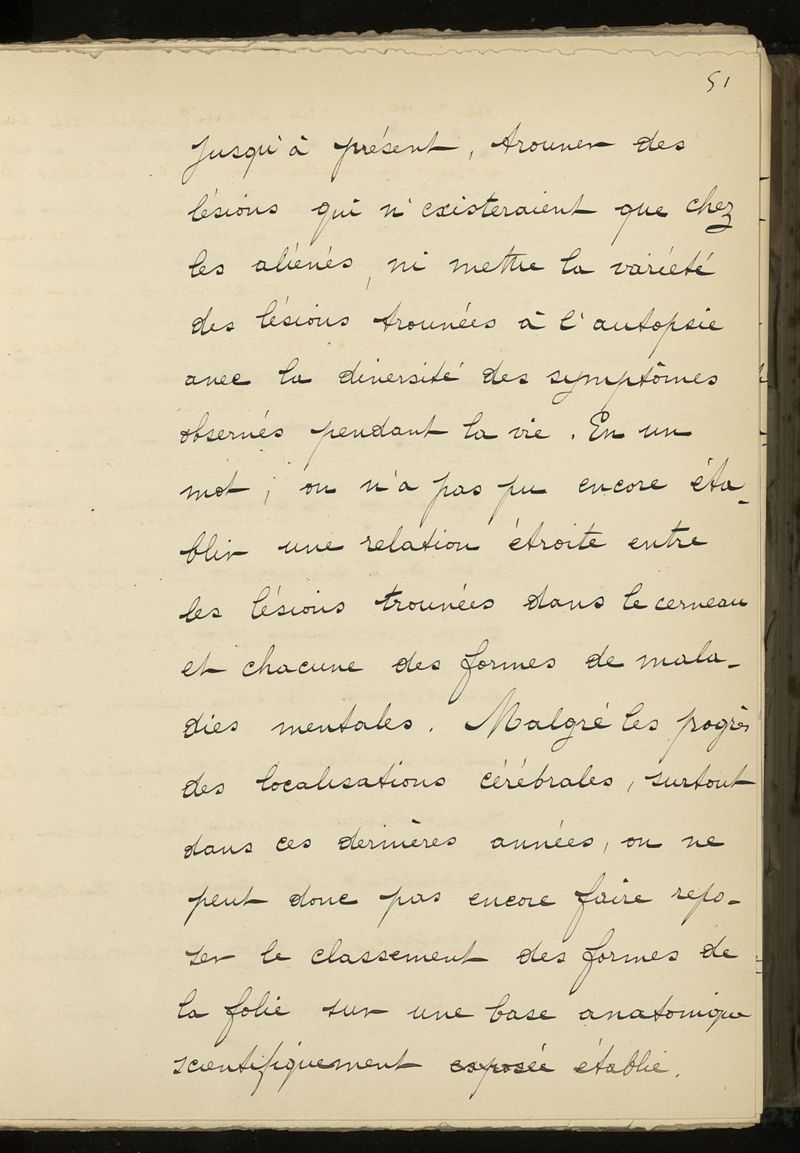 51
jusqu'à présent, trouver des
lésions qui n'existeraient que chez
les aliénés, ni mettre la variété
des lésions trouvées à l'autopsie
avec la diversité des symptômes
observés pendant la vie. En un
mot, on n'a pas pu encore éta-
blir une relation étroite entre
les lésions trouvées dans le cerveau
et chacune des formes de mala-
dies mentales. Malgré les progrès
des localisations cérébrales, surtout
dans ces dernières années, on ne
peut donc pas encore faire repo-
ser le classement des formes de
la folie sur une base anatomique
scientifiquement exposée établie.